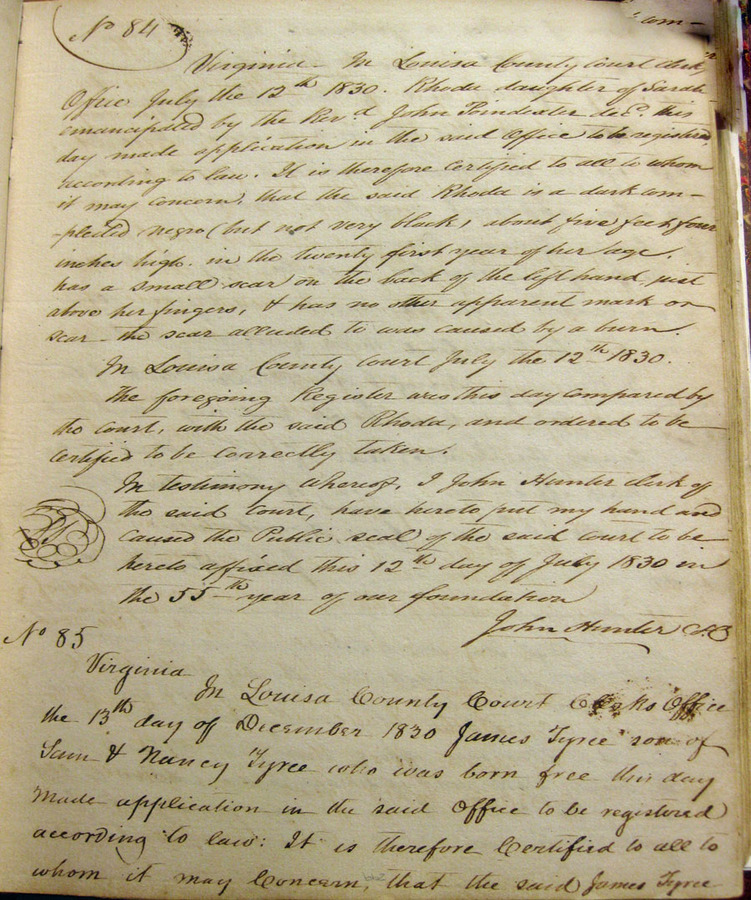 No 84
com-
Virginia. In Louisa County Court clerks
Office July the 12th 1830. Rhoda daughter of Sarah
emancipated by the Revd John Poindexter decd. this
day made application in the said Office to be registered
according to law. It is therefore Certified to all to whom
it may concern, that the said Rhoda is a dark com-
-plected negro (but not very black, about five feet four
inches high. in the twenty first year of her age.
has a small scar on the back of the left hand just
above her fingers, & has no other apparent mark or
scar - the scar alluded to was caused by a burn.
In Louisa County Court July the 12th 1830.
The foregoing Register was this day compared by
the court, with the said Rhoda, and ordered to be
certified to be correctly taken.
In testimony whereof, I John Hunter clerk of
the said Court, have hereto put my hand and
caused the Public seal of the said court to be
hereto affixed this 12th day of July 1830 in
the 55th year of our foundation
John Hunter
No 85
Virginia
In Louisa County Court Clerks Office
the 13th day of December 1830 James Tyree son of
Sam & Nancy Tyree who was born free this day
Made application in the said Office to be registered
according to law: It is therefore Certified to all to
whom it may Concern, that the said James Tyree